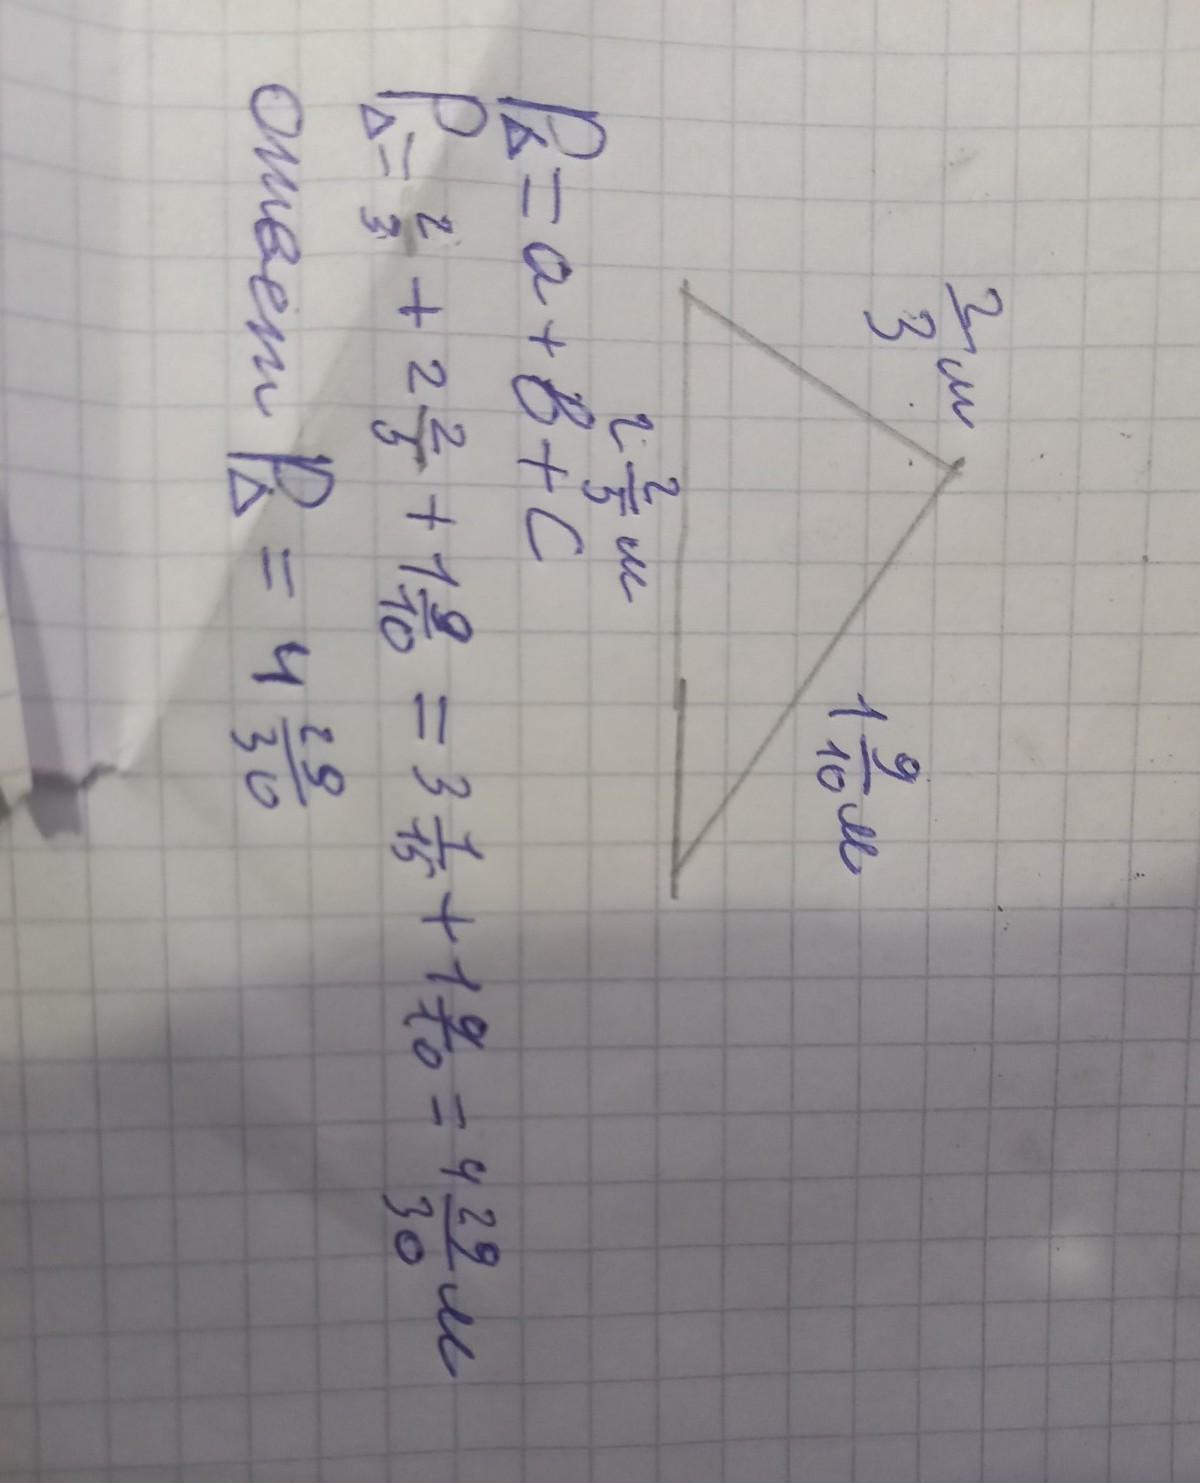 2/3 м
1 9/10 м
2 2/5 м
P△ = a + b + c
P△ = 2/3 + 2 2/5 + 1 9/10 = 3 1/15 + 1 9/10 = 4 29/30 м
Ответ P△ = 4 29/30